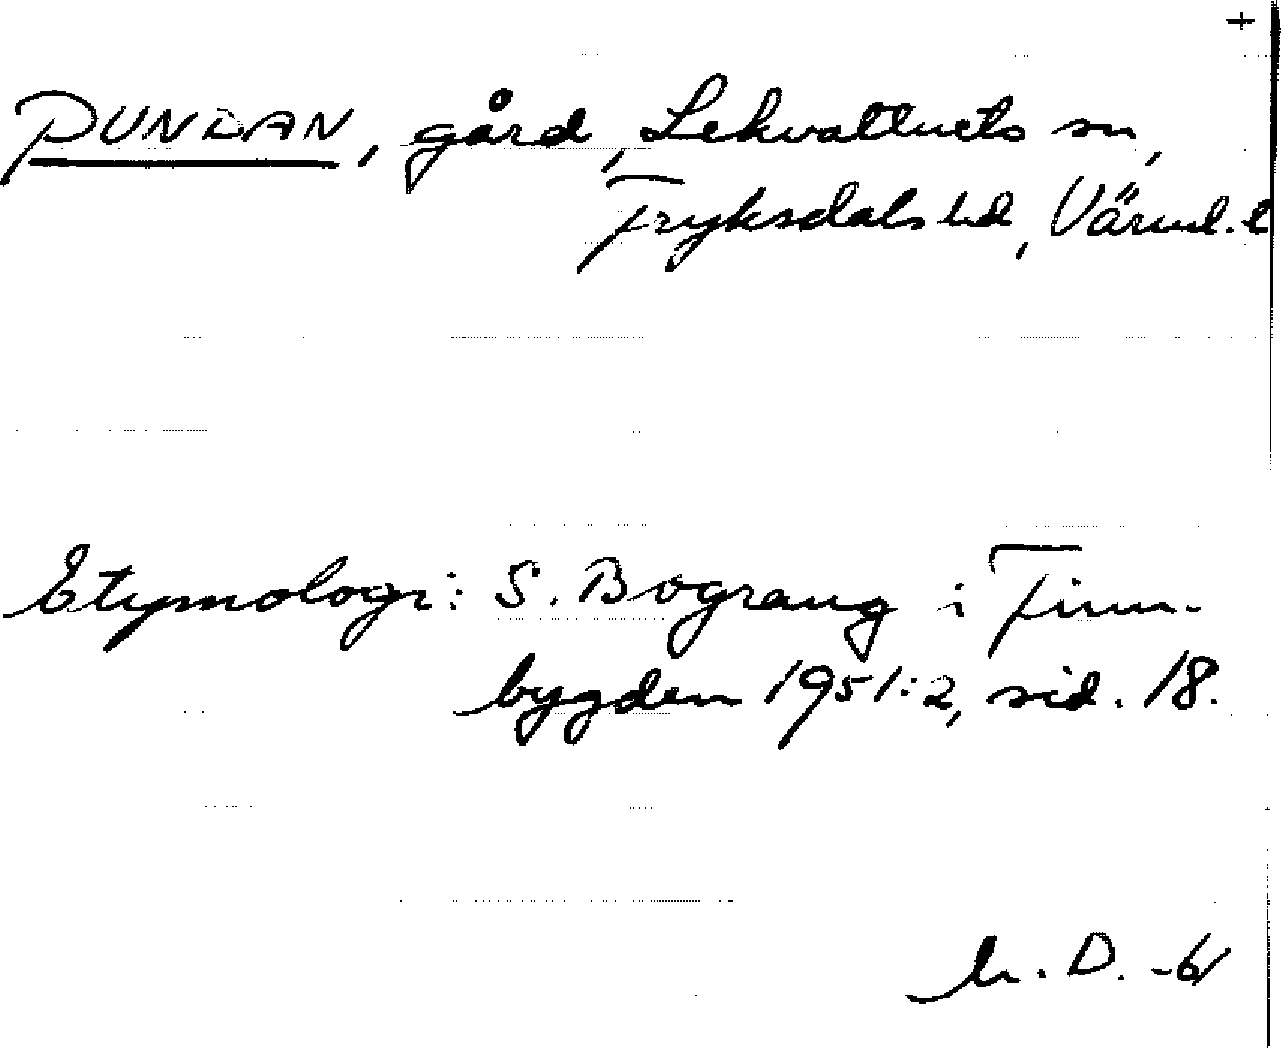 +
PUNDAN, gård, Lekvattnets sn,
Fryksdals hd, Värml. l
Etymologi: S. Bograng i Finn-
bygden 1951:2, sid. 18.
D. -61